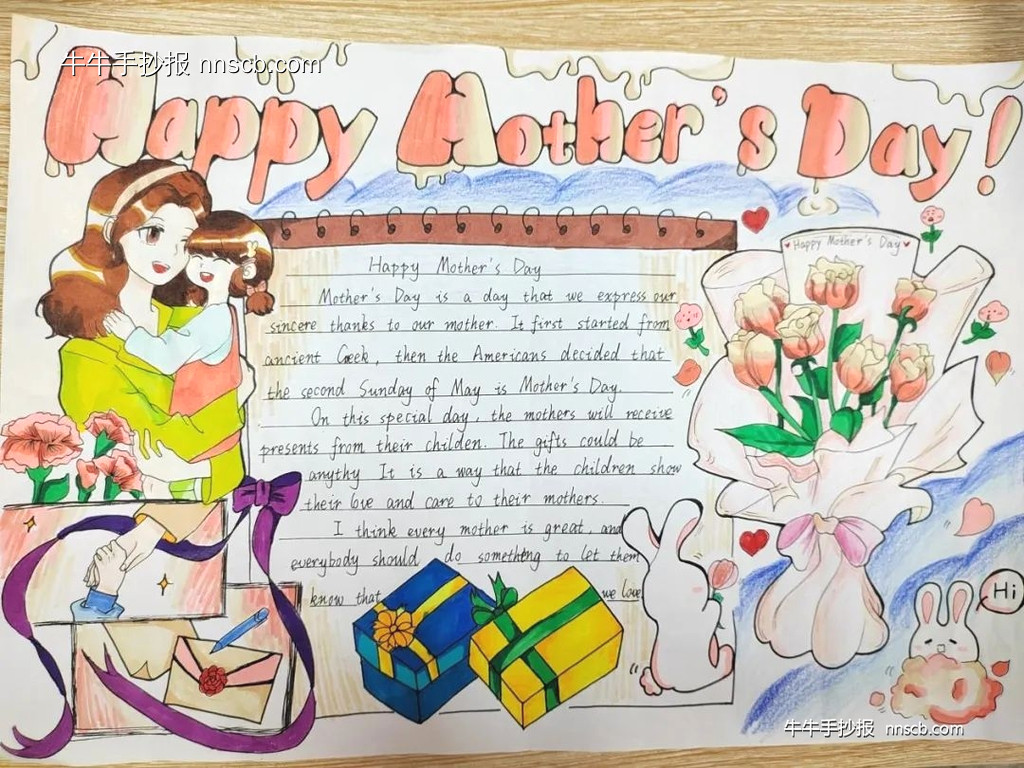 牛牛手抄报 nnscb.com
Happy Mother's Day!
Happy Mother's Day
Happy Mother's Day
Mother's Day is a day that we express our
sincere thanks to our mother. It first started from
ancient Geek, then the Americans decided that
the second Sunday of May is Mother's Day.
On this special day, the mothers will receive
presents from their childen. The gifts could be
anythy It is a way that the children show
their love and care to their mothers.
I think every mother is great, and
everybody should do something to let them
know that we love
Hi
牛牛手抄报 nnscb.com